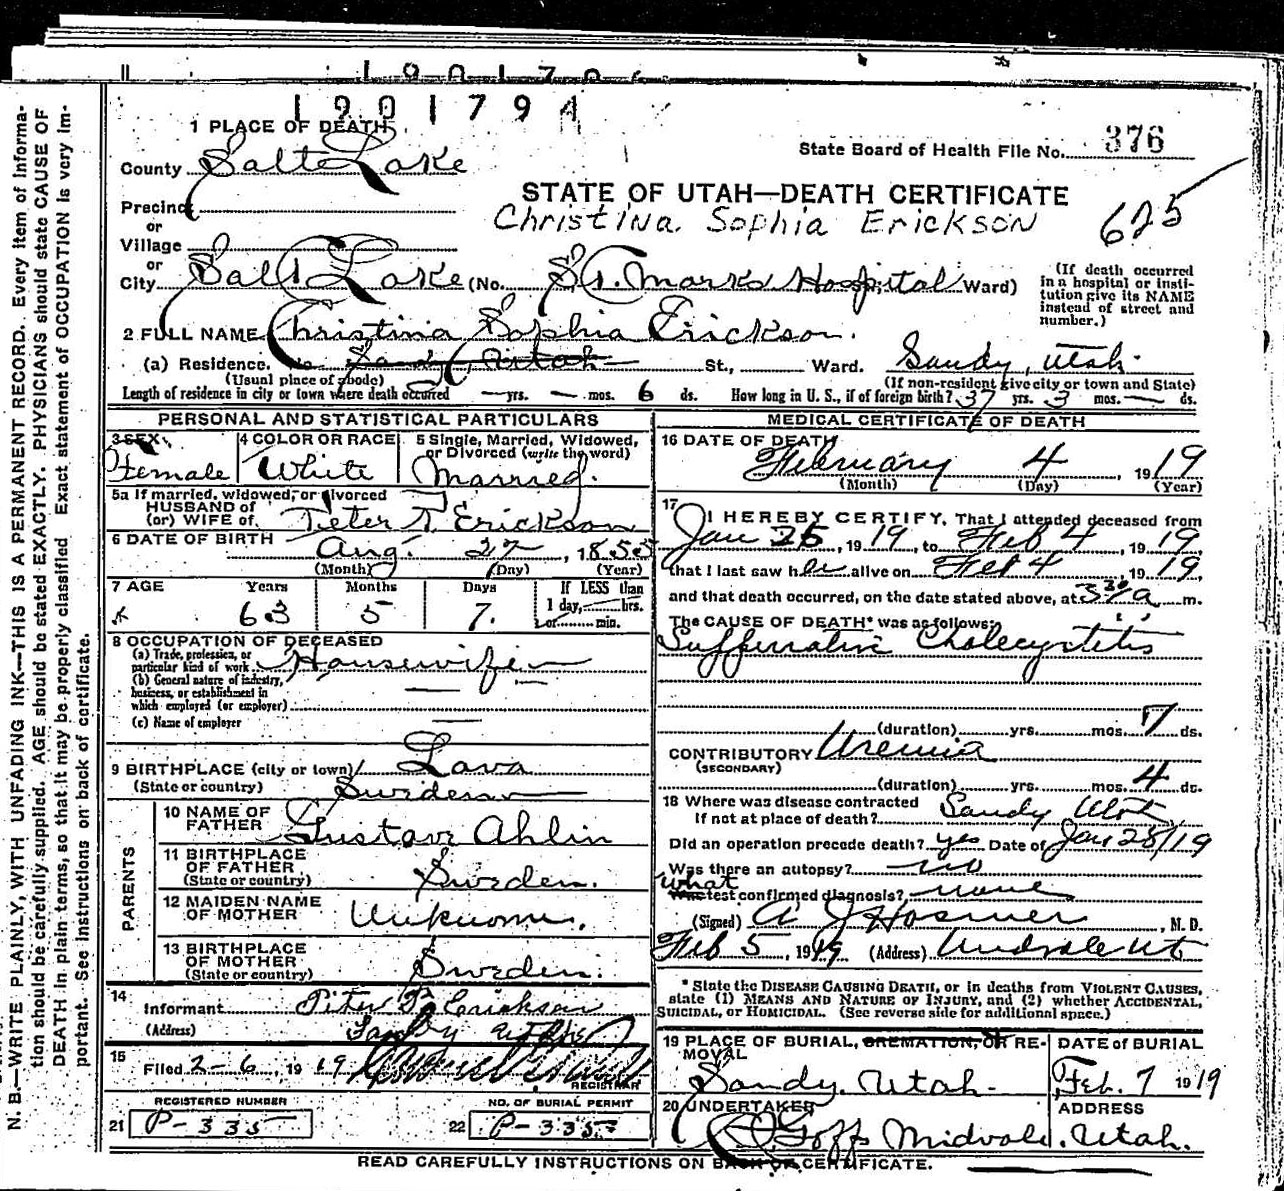 1901794
1 PLACE OF DEATH
State Board of Health File No. 376
County Salt Lake
STATE OF UTAH—DEATH CERTIFICATE
Precinct
Christina Sophia Erickson 625
or
Village
or
City Salt Lake (No. St. Marks Hospital Ward)
(If death occurred in a hospital or institution give its NAME instead of street and number.)
2 FULL NAME Christina Sophia Erickson.
(a) Residence. No Sandy, Utah St., Ward. Sandy, Utah.
(Usual place of abode) (If non-resident give city or town and State)
Length of residence in city or town where death occurred — yrs. — mos. 6 ds. How long in U. S., if of foreign birth? 37 yrs. 3 mos. — ds.
PERSONAL AND STATISTICAL PARTICULARS
3 SEX 4 COLOR OR RACE 5 Single, Married, Widowed, or Divorced (write the word)
Female White Married.
5a If married, widowed, or divorced
HUSBAND of
(or) WIFE of. Peter T. Erickson
6 DATE OF BIRTH
Aug. 27, 1855
(Month) (Day) (Year)
7 AGE Years Months Days If LESS than
63 5 7. 1 day, hrs.
or min.
8 OCCUPATION OF DECEASED
(a) Trade, profession, or
particular kind of work Housewife
(b) General nature of industry,
business, or establishment in
which employed (or employer)
(c) Name of employer
9 BIRTHPLACE (city or town) Lava
(State or country) Sweden
PARENTS
10 NAME OF FATHER Gustave Ahlin
11 BIRTHPLACE OF FATHER (State or country) Sweden.
12 MAIDEN NAME OF MOTHER Unknown.
13 BIRTHPLACE OF MOTHER (State or country) Sweden.
14
Informant Peter T. Erickson
(Address) Sandy Utah
15
Filed 2-6, 1919
REGISTRAR
REGISTERED NUMBER NO. OF BURIAL PERMIT
21 P-335 22 P-335
MEDICAL CERTIFICATE OF DEATH
16 DATE OF DEATH
February 4, 1919
(Month) (Day) (Year)
17
I HEREBY CERTIFY, That I attended deceased from
Jan 26, 1919, to Feb 4, 1919
that I last saw her alive on Feb 4, 1919
and that death occurred, on the date stated above, at 3 30 a m.
The CAUSE OF DEATH* was as follows:
Suppurative Cholecystitis
(duration) yrs. mos. 7 ds.
CONTRIBUTORY Uremia
(SECONDARY)
(duration) yrs. mos. 4 ds.
18 Where was disease contracted
If not at place of death? Sandy Utah
Did an operation precede death? yes Date of Jan 28/19
Was there an autopsy? no
What test confirmed diagnosis? none
(Signed) A J Hosmer, M. D.
Feb 5, 1919 (Address) Midvale Ut
* State the DISEASE CAUSING DEATH, or in deaths from VIOLENT CAUSES,
state (1) MEANS AND NATURE OF INJURY, and (2) whether ACCIDENTAL,
SUICIDAL, or HOMICIDAL. (See reverse side for additional space.)
19 PLACE OF BURIAL, CREMATION, OR REMOVAL DATE of BURIAL
Sandy, Utah- Feb. 7 1919
20 UNDERTAKER ADDRESS
Goff Midvale, Utah.
READ CAREFULLY INSTRUCTIONS ON BACK OF CERTIFICATE.
N. B.—WRITE PLAINLY, WITH UNFADING INK—THIS IS A PERMANENT RECORD. Every item of informa-
tion should be carefully supplied. AGE should be stated EXACTLY. PHYSICIANS should state CAUSE OF
DEATH in plain terms, so that it may be properly classified. Exact statement of OCCUPATION is very im-
portant. See instructions on back of certificate.